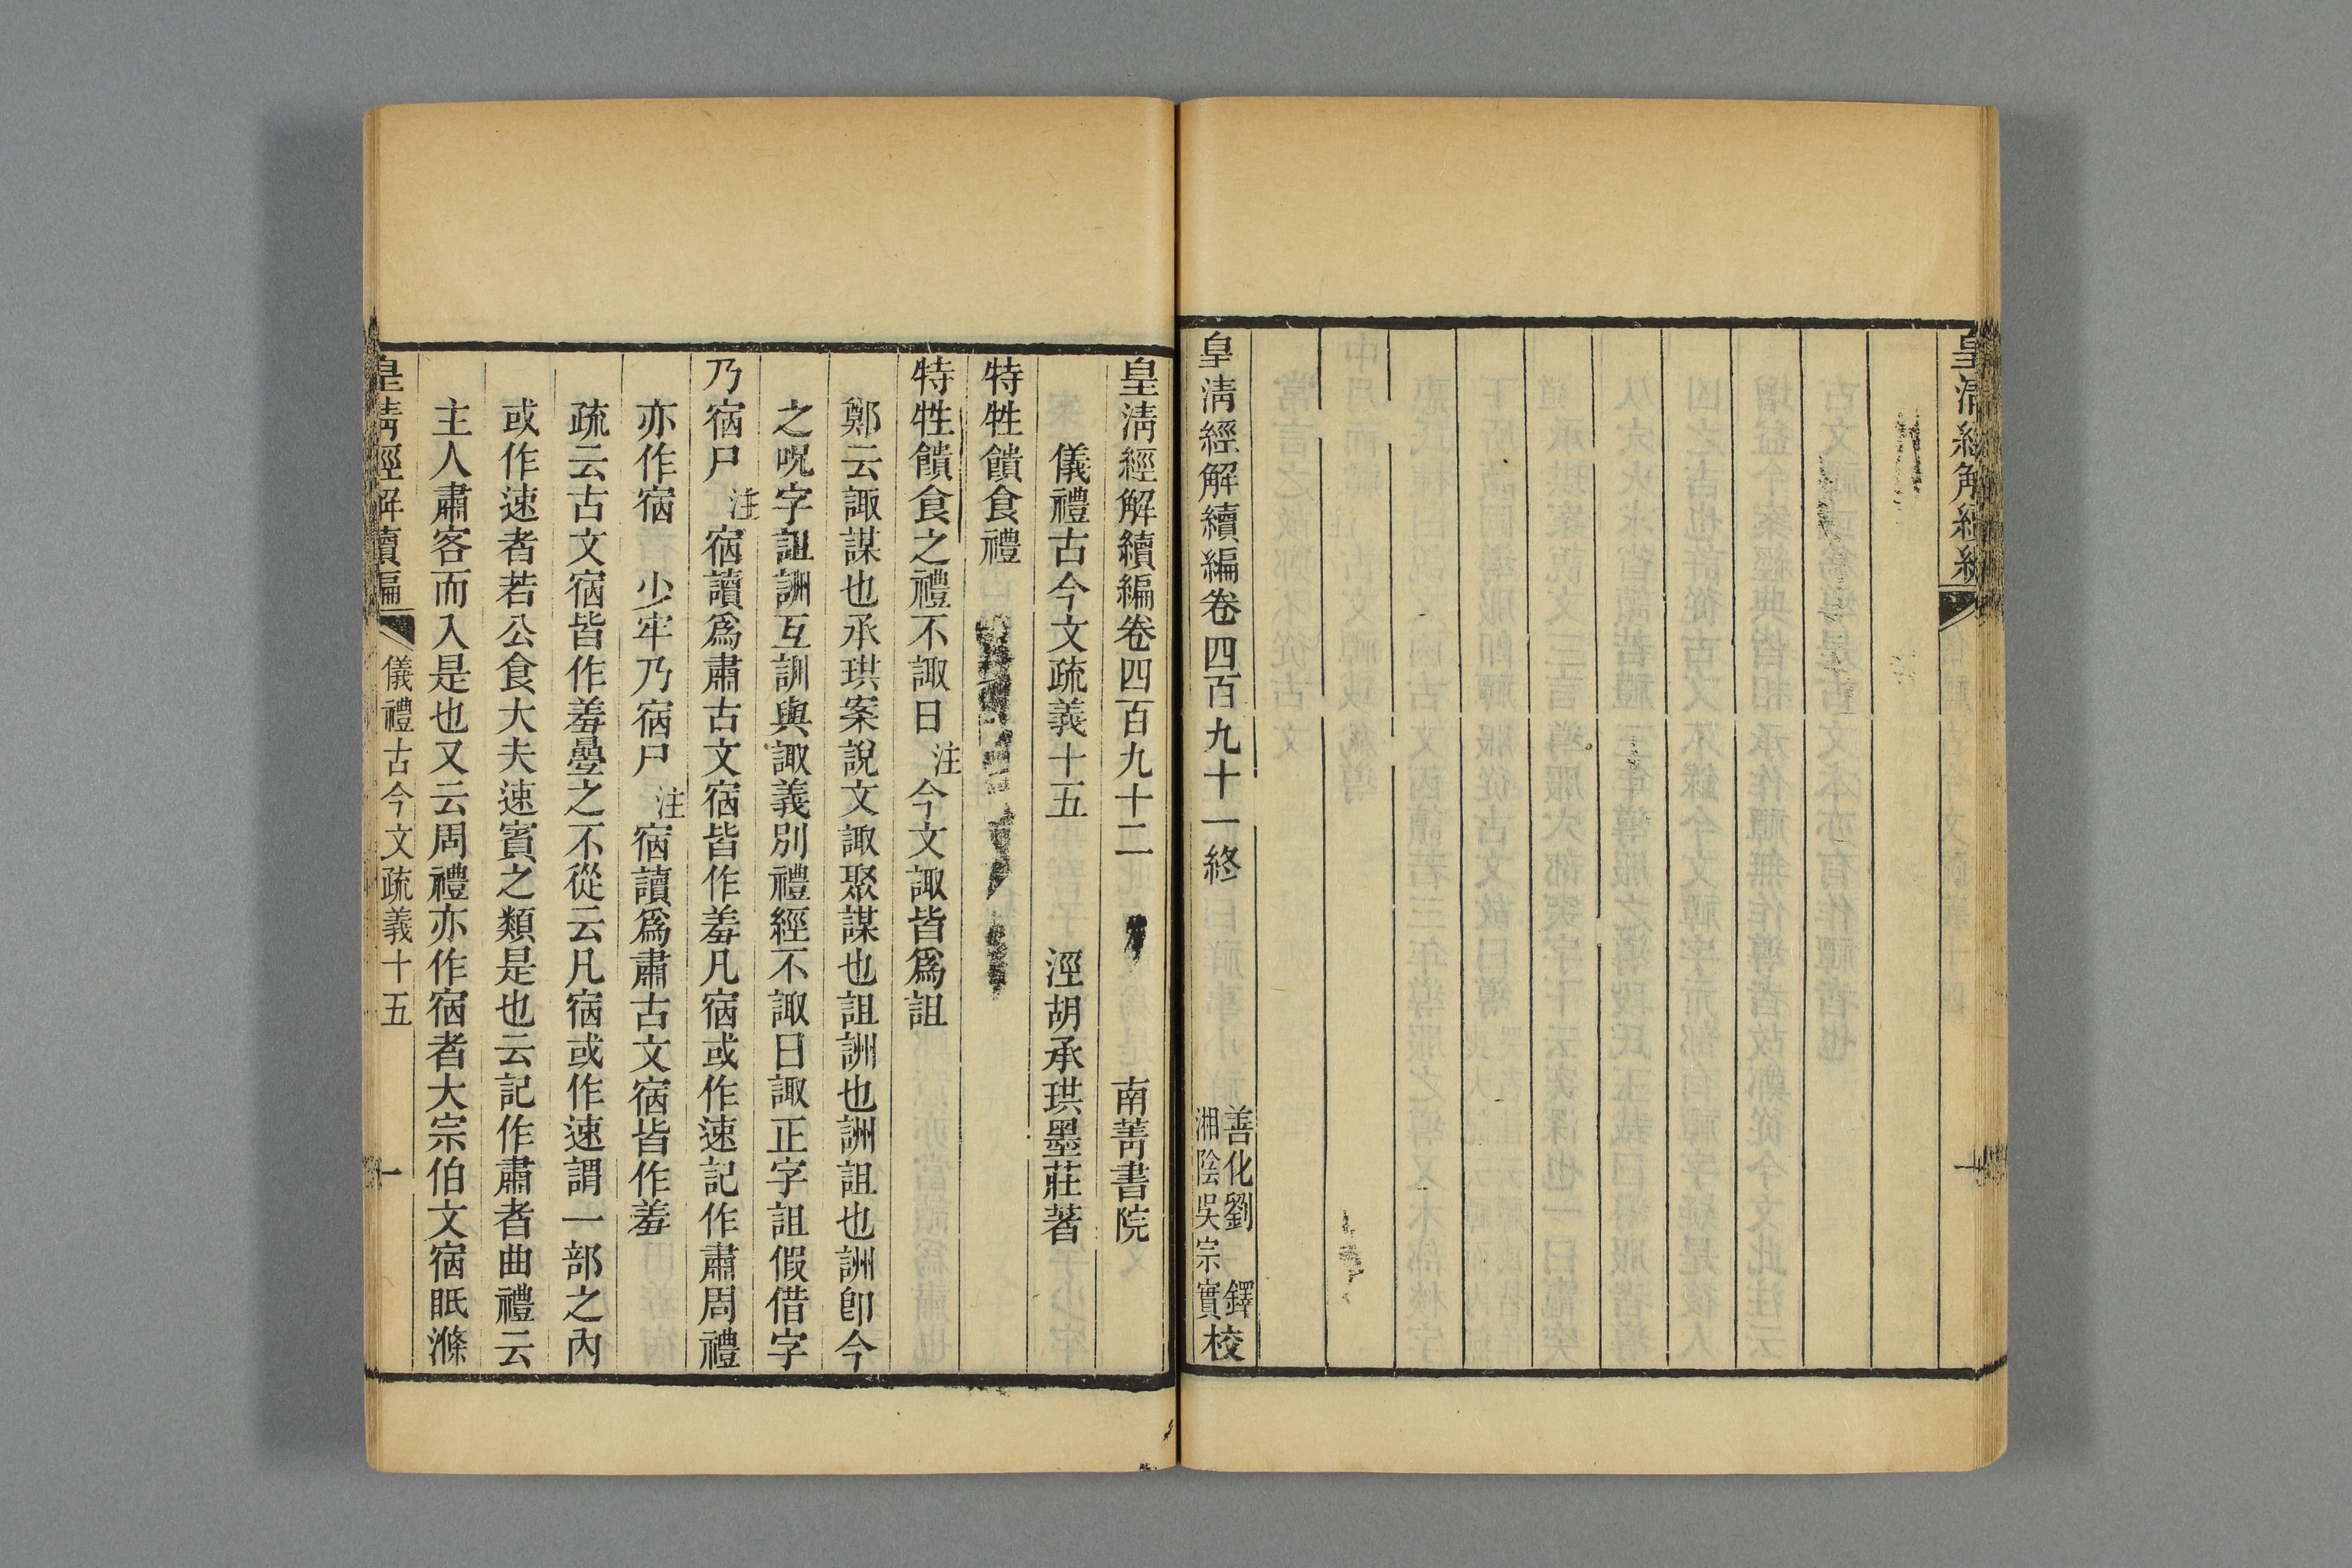 皇清經解續編
一
皇清經解續編卷四百九十一終
善化劉鐸
湘陰吳宗實校
皇清經解續編卷四百九十二　南菁書院
儀禮古今文疏義十五　涇胡承珙墨莊著
特牲饋食禮
特牲饋食之禮不諏日注今文諏皆爲詛
鄭云諏謀也承珙案說文諏聚謀也詛詶也詶詛也詶卽今
之呪字詛詶互訓與諏義別禮經不諏日諏正字詛假借字
乃宿尸注宿讀爲肅古文宿皆作羞凡宿或作速記作肅周禮
亦作宿　少牢乃宿尸注宿讀爲肅古文宿皆作羞
疏云古文宿皆作羞曡之不從云凡宿或作速謂一部之內
或作速者若公食大夫速賓之類是也云記作肅者曲禮云
主人肅客而入是也又云周禮亦作宿者大宗伯文宿眂滌
皇清經解續編　儀禮古今文疏義十五　一